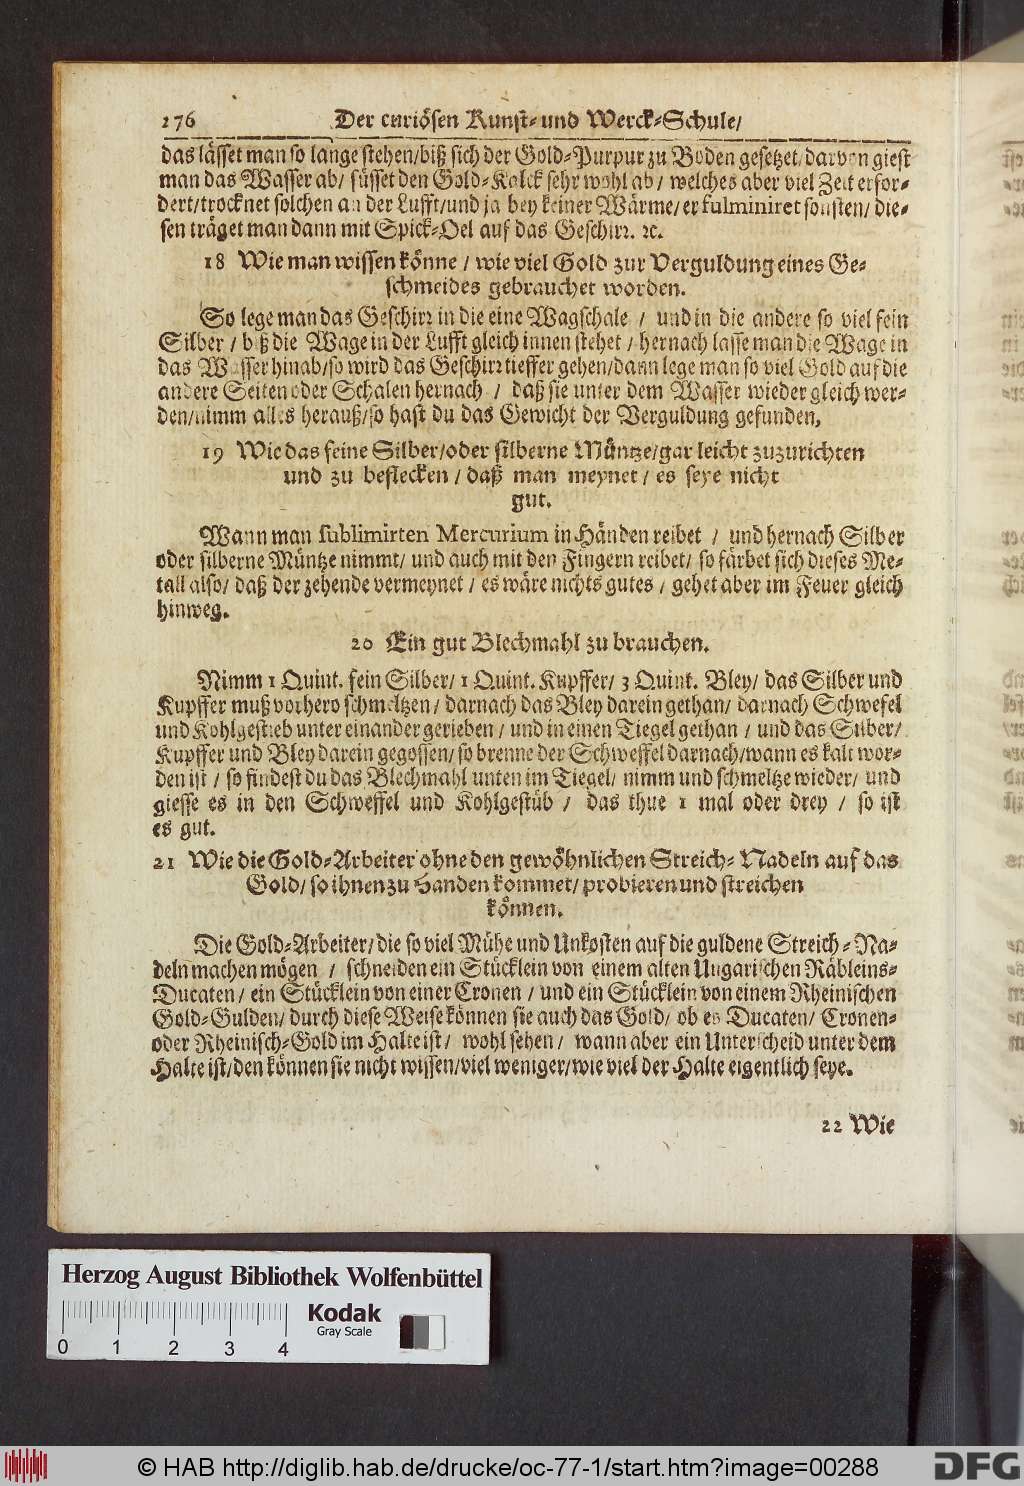 176 Der curiösen Kunst- und Werck-Schule/
das lässet man so lange stehen/biß sich der Gold-Purpur zu Boden gesetzet/darvon giest
man das Wasser ab/ süsset den Gold-Kalck sehr wohl ab/ welches aber viel Zeit erfor-
dert/trocknet solchen an der Lufft/und ja bey keiner Wärme/er fulminiret sonsten/ die-
sen träget man dann mit Spick-Oel auf das Geschirr. ꝛc.
18 Wie man wissen könne / wie viel Gold zur Verguldung eines Ge-
schmeides gebrauchet worden.
So lege man das Geschirr in die eine Wagschale / und in die andere so viel fein
Silber / biß die Wage in der Lufft gleich innen stehet / hernach lasse man die Wage in
das Wasser hinab/so wird das Geschirr tieffer gehen/dann lege man so viel Gold auf die
andere Seiten oder Schalen hernach / daß sie unter dem Wasser wieder gleich wer-
den/nimm alles herauß/so hast du das Gewicht der Verguldung gefunden,
19 Wie das feine Silber/oder silberne Müntze/gar leicht zuzurichten
und zu beflecken / daß man meynet / es seye nicht
gut.
Wann man sublimirten Mercurium in Händen reibet / und hernach Silber
oder silberne Müntze nimmt/ und auch mit den Fingern reibet/ so färbet sich dieses Me-
tall also/ daß der zehende vermeynet / es wäre nichts gutes / gehet aber im Feuer gleich
hinweg.
20 Ein gut Blechmahl zu brauchen.
Nimm 1 Quint. fein Silber/ 1 Quint. Kupffer/ 3 Quint. Bley/ das Silber und
Kupffer muß vorhero schmeltzen/ darnach das Bley darein gethan/ darnach Schwefel
und Kohlgestieb unter einander gerieben / und in einen Tiegel gethan / und das Silber/
Kupffer und Bley darein gegossen/ so brenne der Schweffel darnach/wann es kalt wor-
den ist / so findest du das Blechmahl unten im Tiegel/ nimm und schmeltze wieder/ und
giesse es in den Schweffel und Kohlgestüb / das thue 1 mal oder drey / so ist
es gut.
21 Wie die Gold-Arbeiter ohne den gewöhnlichen Streich-Nadeln auf das
Gold/ so ihnen zu Handen kommet/ probieren und streichen
können.
Die Gold-Arbeiter/die so viel Mühe und Unkosten auf die guldene Streich-Na-
deln machen mögen / schneiden ein Stücklein von einem alten Ungarischen Räbleins-
Ducaten / ein Stücklein von einer Cronen / und ein Stücklein von einem Rheinischen
Gold-Gulden/ durch diese Weise können sie auch das Gold/ ob es Ducaten/ Cronen-
oder Rheinisch-Gold im Halte ist/ wohl sehen/ wann aber ein Unterscheid unter dem
Halte ist/den können sie nicht wissen/viel weniger/wie viel der Halte eigentlich seye.
22 Wie
Herzog August Bibliothek Wolfenbüttel
Kodak
Gray Scale
0 1 2 3 4
© HAB http://diglib.hab.de/drucke/oc-77-1/start.htm?image=00288
DFG